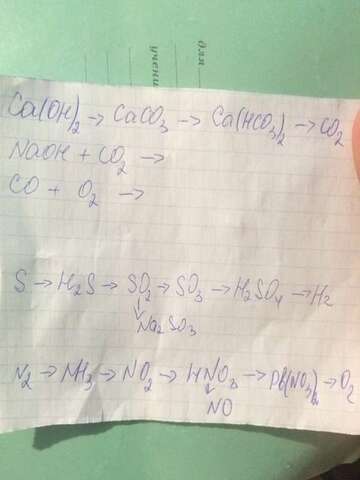 для
учени
Ca(OH)₂ → CaCO₃ → Ca(HCO₃)₂ → CO₂
NaOH + CO₂ →
CO + O₂ →
S → H₂S → SO₂ → SO₃ → H₂SO₄ → H₂
↓
Na₂SO₃
N₂ → NH₃ → NO₂ → HNO₃ → Pb(NO₃)₂ → O₂
↓
NO